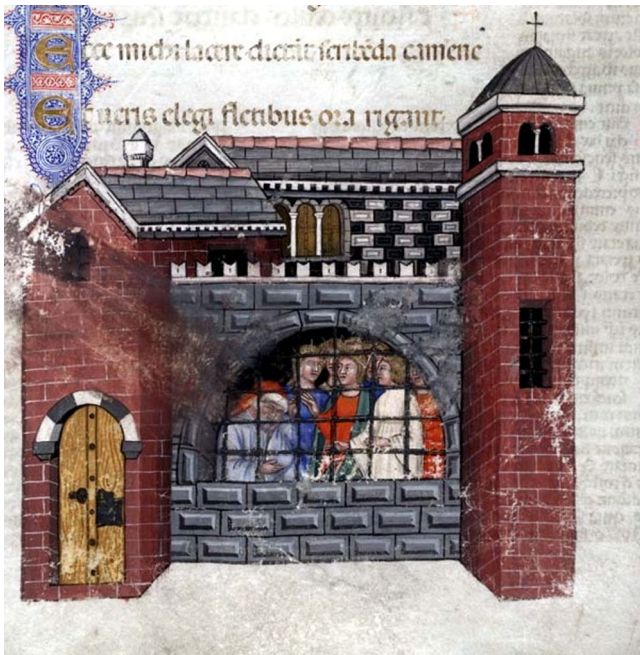 Ecce michi lacere dictāt scribēda camene
Et ueris elegi fletibus ora rigant